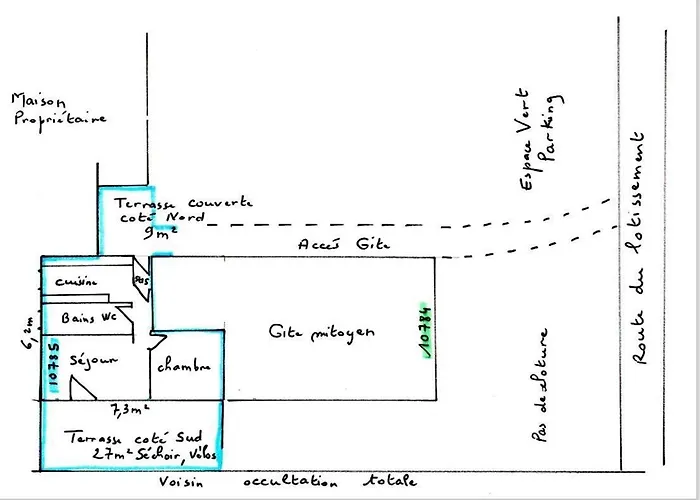 Maison
Propriétaire
Terrasse couverte
coté Nord
9 m²
Espace Vert
Parking
Route du lotissement
Accés Gîte
cuisine
Sas
Bains Wc
6,2m
10785
Séjour
chambre
Gîte mitoyen
10784
Pas de cloture
7,3m²
Terrasse coté Sud
27m² Séchoir, Vélos
Voisin occultation totale